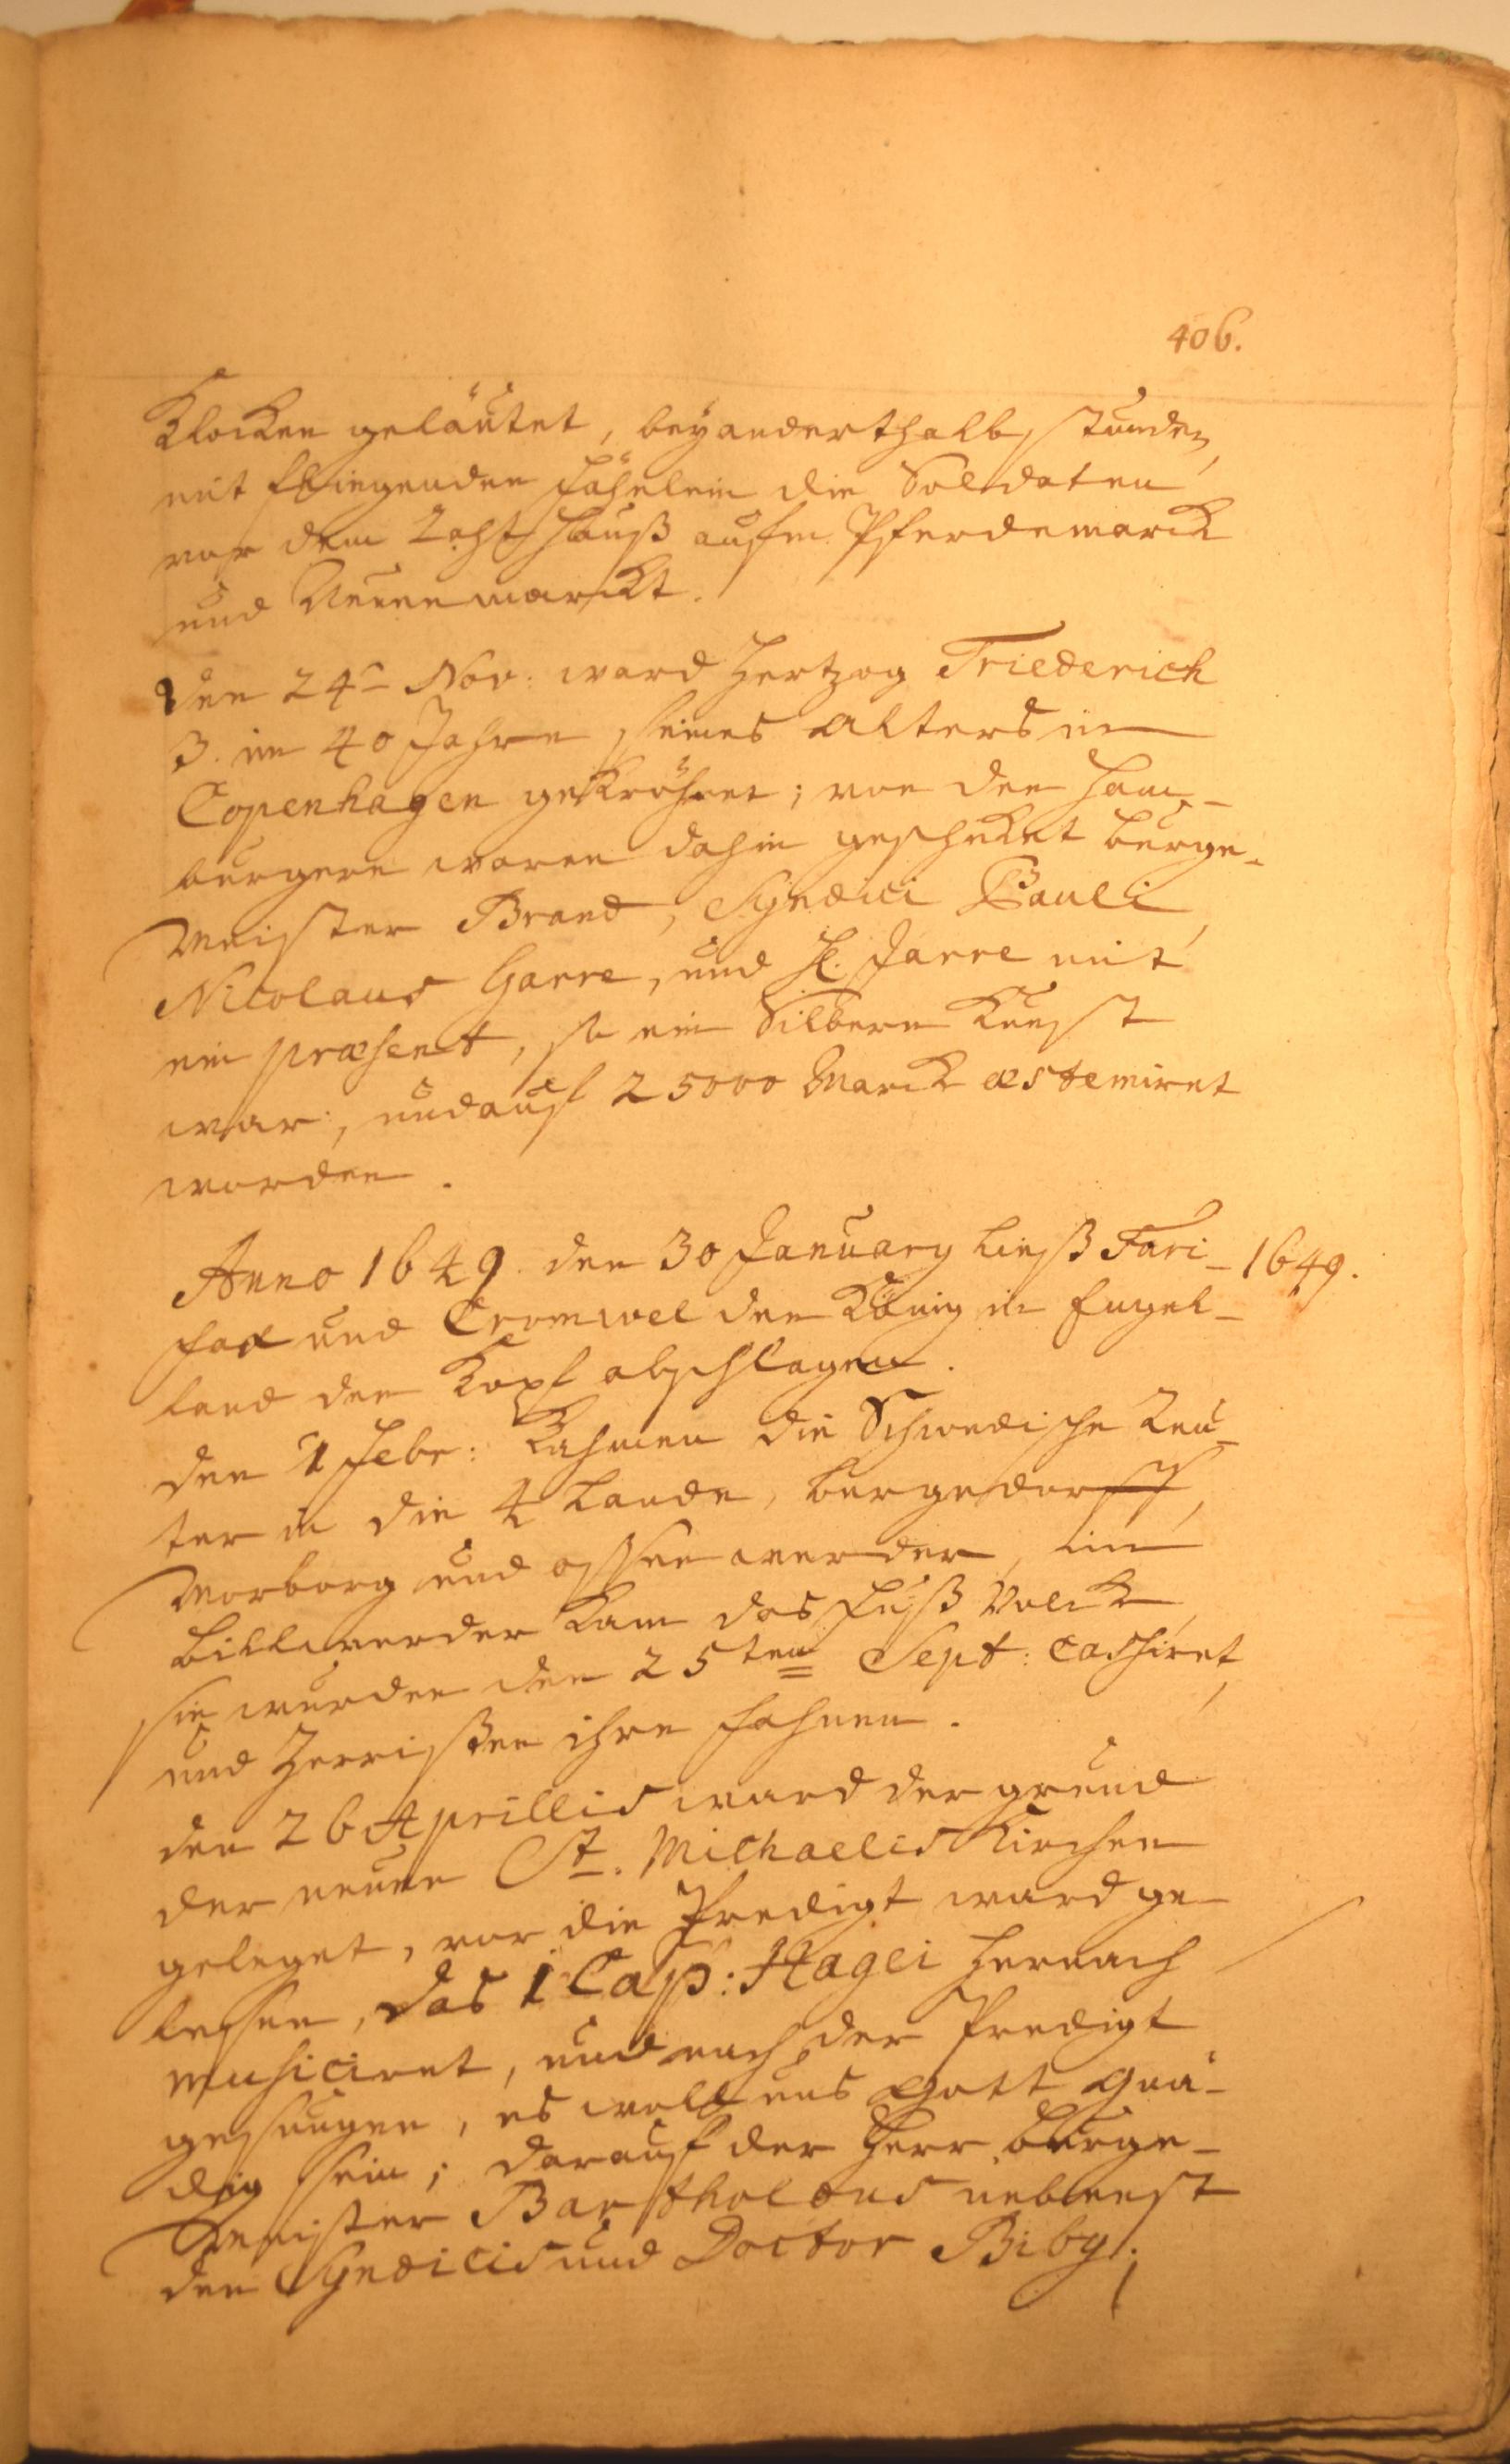 406.
Klocken geläutet, bey anderthalb stunden,
mit fliegenden fähnlein die Soldaten
vor dem Zuchthauß aufm Pferdemarck
und Neuenmarckt.
den 24 Nov: ward Hertzog Friederich
3. im 40 Jahre seines alters in
Copenhagen gekröhnet; von den Ham-
burgern waren dahin geschicket burge-
meister Brand, Syndici Pauli,
Nicolaus Garre, und H. Jarre mit
ein præsent, so ein Silbern Kunst
war, und auf 25000 Marck æstemiret
worden.
Anno 1649. den 30 January ließ Fari- 1649.
fax und Cromwel den König in Engel-
land den Kopf abschlagen.
den 1 Febr: Kahmen die Schwedische Reu-
ter in die 4 Lande, bergedorff,
Morborg und ossenwerder, im
billwerder kam das fuß Volck
sie wurden den 25ten Sept: cassiret,
und Zerrißen ihre fahnen.
den 26 Aprillis ward der grund
der neuen St. Michaelis Kirchen
geleget, vor die Predigt ward ge-
lesen, das 1 Cap: Hagei hernach
musiciret, und nach der Predigt
gesungen, es woll uns Gott gnä-
dig sein; darauf der Herr burge-
meister Bartholous nebenst
den Syndicis und Doctor Biby;